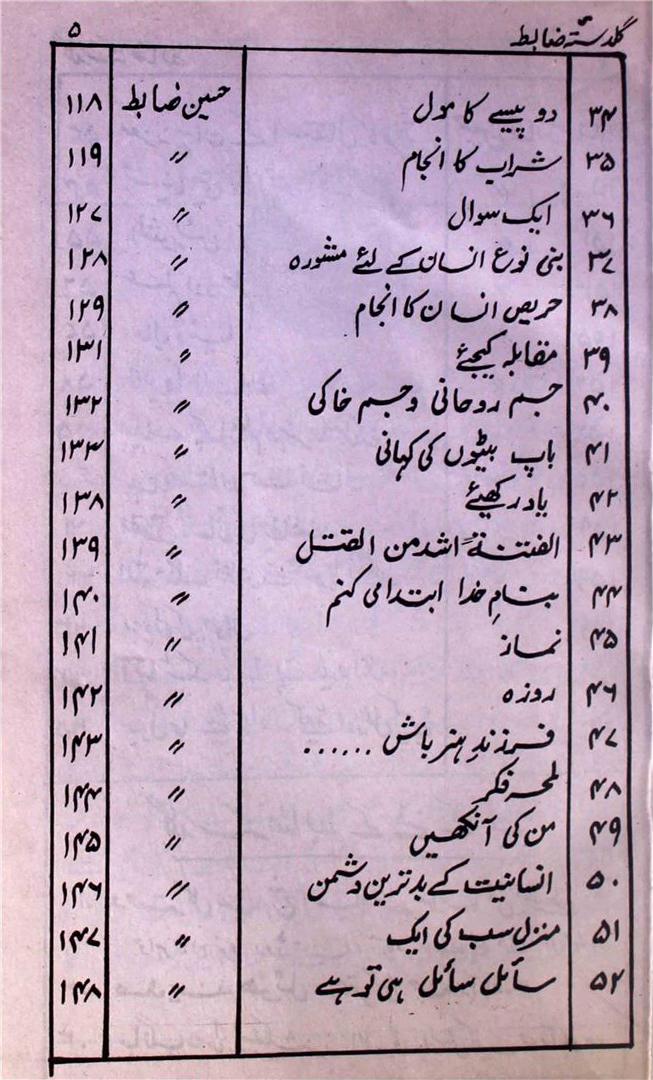 گلدستۂ ضابط ۵
۳۴ دو پیسے کا مول حسین ضابط ۱۱۸
۳۵ شراب کا انجام 〃 ۱۱۹
۳۶ ایک سوال 〃 ۱۲۷
۳۷ بنی نوع انسان کے لئے مشورہ 〃 ۱۲۸
۳۸ حریص انسان کا انجام 〃 ۱۲۹
۳۹ مقابلہ کیجئے 〃 ۱۳۱
۴۰ جسم روحانی و جسم خاکی 〃 ۱۳۲
۴۱ باپ بیٹوں کی کہانی 〃 ۱۳۴
۴۲ یاد رکھیئے 〃 ۱۳۸
۴۳ الفتنۃ اشد من القتل 〃 ۱۳۹
۴۴ بنامِ خدا ابتدا می کنم 〃 ۱۴۰
۴۵ نماز 〃 ۱۴۱
۴۶ روزہ 〃 ۱۴۲
۴۷ فرزندِ ہنر باش ...... 〃 ۱۴۳
۴۸ لمحہ فکر 〃 ۱۴۴
۴۹ من کی آنکھیں 〃 ۱۴۵
۵۰ انسانیت کے بدترین دشمن 〃 ۱۴۶
۵۱ منزل سب کی ایک 〃 ۱۴۷
۵۲ سائل سائل ہی تو ہے 〃 ۱۴۸